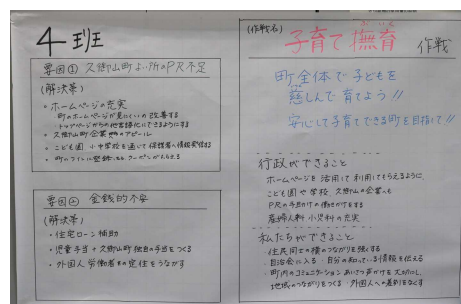 4班
要因① 久御山町よい所のPR不足
(解決策)
・ホームページの充実
町のホームページが見にくいの改善する
・トップページからの他言語化にできるようにする
・久御山町企業のアピール
・こども園 小中学校を通じて保護者へ情報発信する
・町にラインに登録したら クーポンがもらえる
要因② 金銭的不安
(解決策)
・住宅ローン補助
・児童手当+久御山町独自の手当をつくる
・外国人労働者の定住をうながす
(作戦名)
子育て撫育 作戦
町全体で子どもを
慈しんで育てよう!!
安心して子育てできる町を目指して!!
行政ができること
ホームページを活用して利用してもらえるように、
こども園や学校、久御山の企業へも
PRの手助けの働きかけをする
産婦人科 小児科の充実
私たちができること
・住民同士の横のつながりを強くする
・自治会に入る・自分の知っている情報を伝える
・町内のコミュニケーションあいさつ声かけを大切にし、
地域のつながりをつくる・外国人への差別をなくす